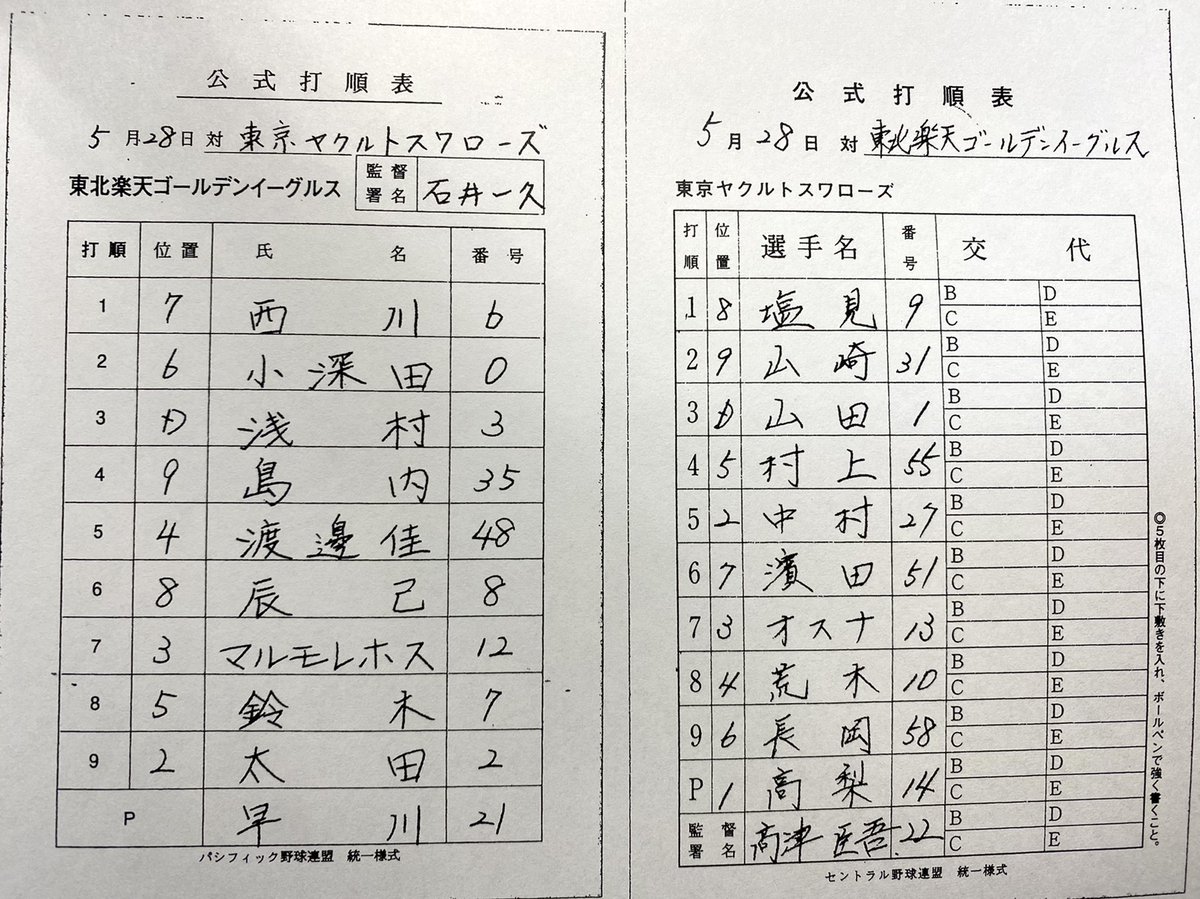 公式打順表
5月28日 対 東京ヤクルトスワローズ
東北楽天ゴールデンイーグルス 監督署名 石井一久
打順 位置 氏名 番号
1 7 西川 6
2 6 小深田 0
3 D 浅村 3
4 9 島内 35
5 4 渡邊佳 48
6 8 辰己 8
7 3 マルモレホス 12
8 5 鈴木 7
9 2 太田 2
P 早川 21
パシフィック野球連盟 統一様式
公式打順表
5月28日 対 東北楽天ゴールデンイーグルス
東京ヤクルトスワローズ
打順 位置 選手名 番号 交代
1 8 塩見 9 B D
C E
2 9 山崎 31 B D
C E
3 D 山田 1 B D
C E
4 5 村上 55 B D
C E
5 2 中村 27 B D
C E
6 7 濱田 51 B D
C E
7 3 オスナ 13 B D
C E
8 4 荒木 10 B D
C E
9 6 長岡 58 B D
C E
P 1 高梨 14 B D
C E
監督署名 高津臣吾 22 B D
C E
セントラル野球連盟 統一様式
◎5枚目の下に下敷きを入れ、ボールペンで強く書くこと。